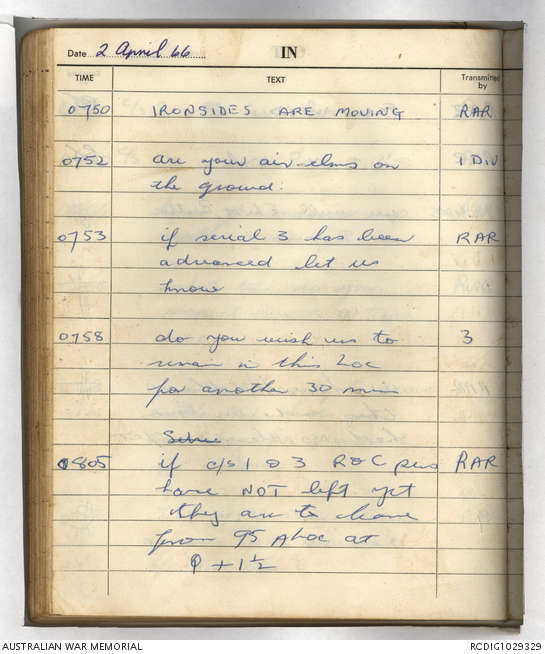 Date 2 April 66 IN
TIME TEXT Transmitted by
0750 IRONSIDES ARE MOVING RAR
0752 are your air elms on 1 DIV
the ground.
0753 if serial 3 has been RAR
advanced let us
know
0758 do you wish us to 3
remain in this Loc
for another 30 min
0805 if c/s 1 & 3 R&C pers RAR
have NOT left yet
they are to leave
from 95 Aloc at
P + 1½
AUSTRALIAN WAR MEMORIAL RCDIG1029329